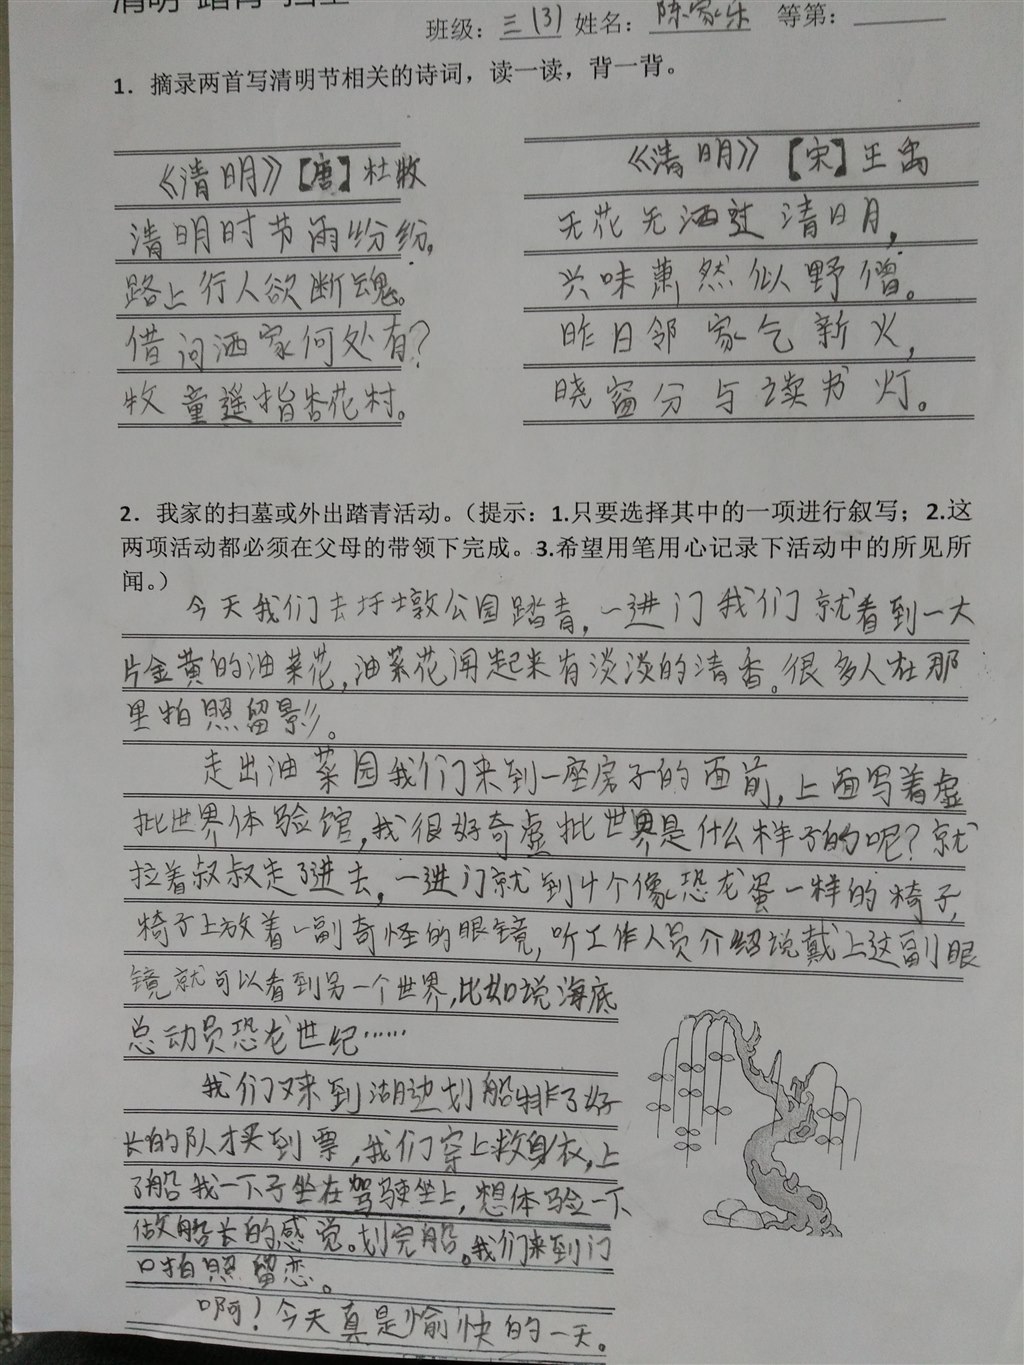 清明 踏青 扫墓
班级：三(3) 姓名：陈家乐 等第：
1．摘录两首写清明节相关的诗词，读一读，背一背。
《清明》【唐】杜牧
清明时节雨纷纷，
路上行人欲断魂。
借问洒家何处有？
牧童遥指杏花村。
《清明》【宋】王禹
无花无洒过清明，
兴味萧然似野僧。
昨日邻家乞新火，
晓窗分与读书灯。
2．我家的扫墓或外出踏青活动。（提示：1.只要选择其中的一项进行叙写；2.这
两项活动都必须在父母的带领下完成。3.希望用笔用心记录下活动中的所见所
闻。）
今天我们去圩墩公园踏青，一进门我们就看到一大
片金黄的油菜花，油菜花闻起来有淡淡的清香。很多人在那
里拍照留影。
走出油菜园我们来到一座房子的面前，上面写着虚
批世界体验馆，我很好奇虚批世界是什么样子的呢？就
拉着叔叔走了进去，一进门就到4个像恐龙蛋一样的椅子，
椅子上放着一副奇怪的眼镜，听工作人员介绍说戴上这副眼
镜就可以看到另一个世界，比如说海底
总动员恐龙世纪……
我们又来到湖边划船排了好
长的队才买到票，我们穿上救身衣，上
了船我一下子坐在驾驶坐上，想体验一下
做船长的感觉。划完船。我们来到门
口拍照留恋。
啊！今天真是愉快的一天。